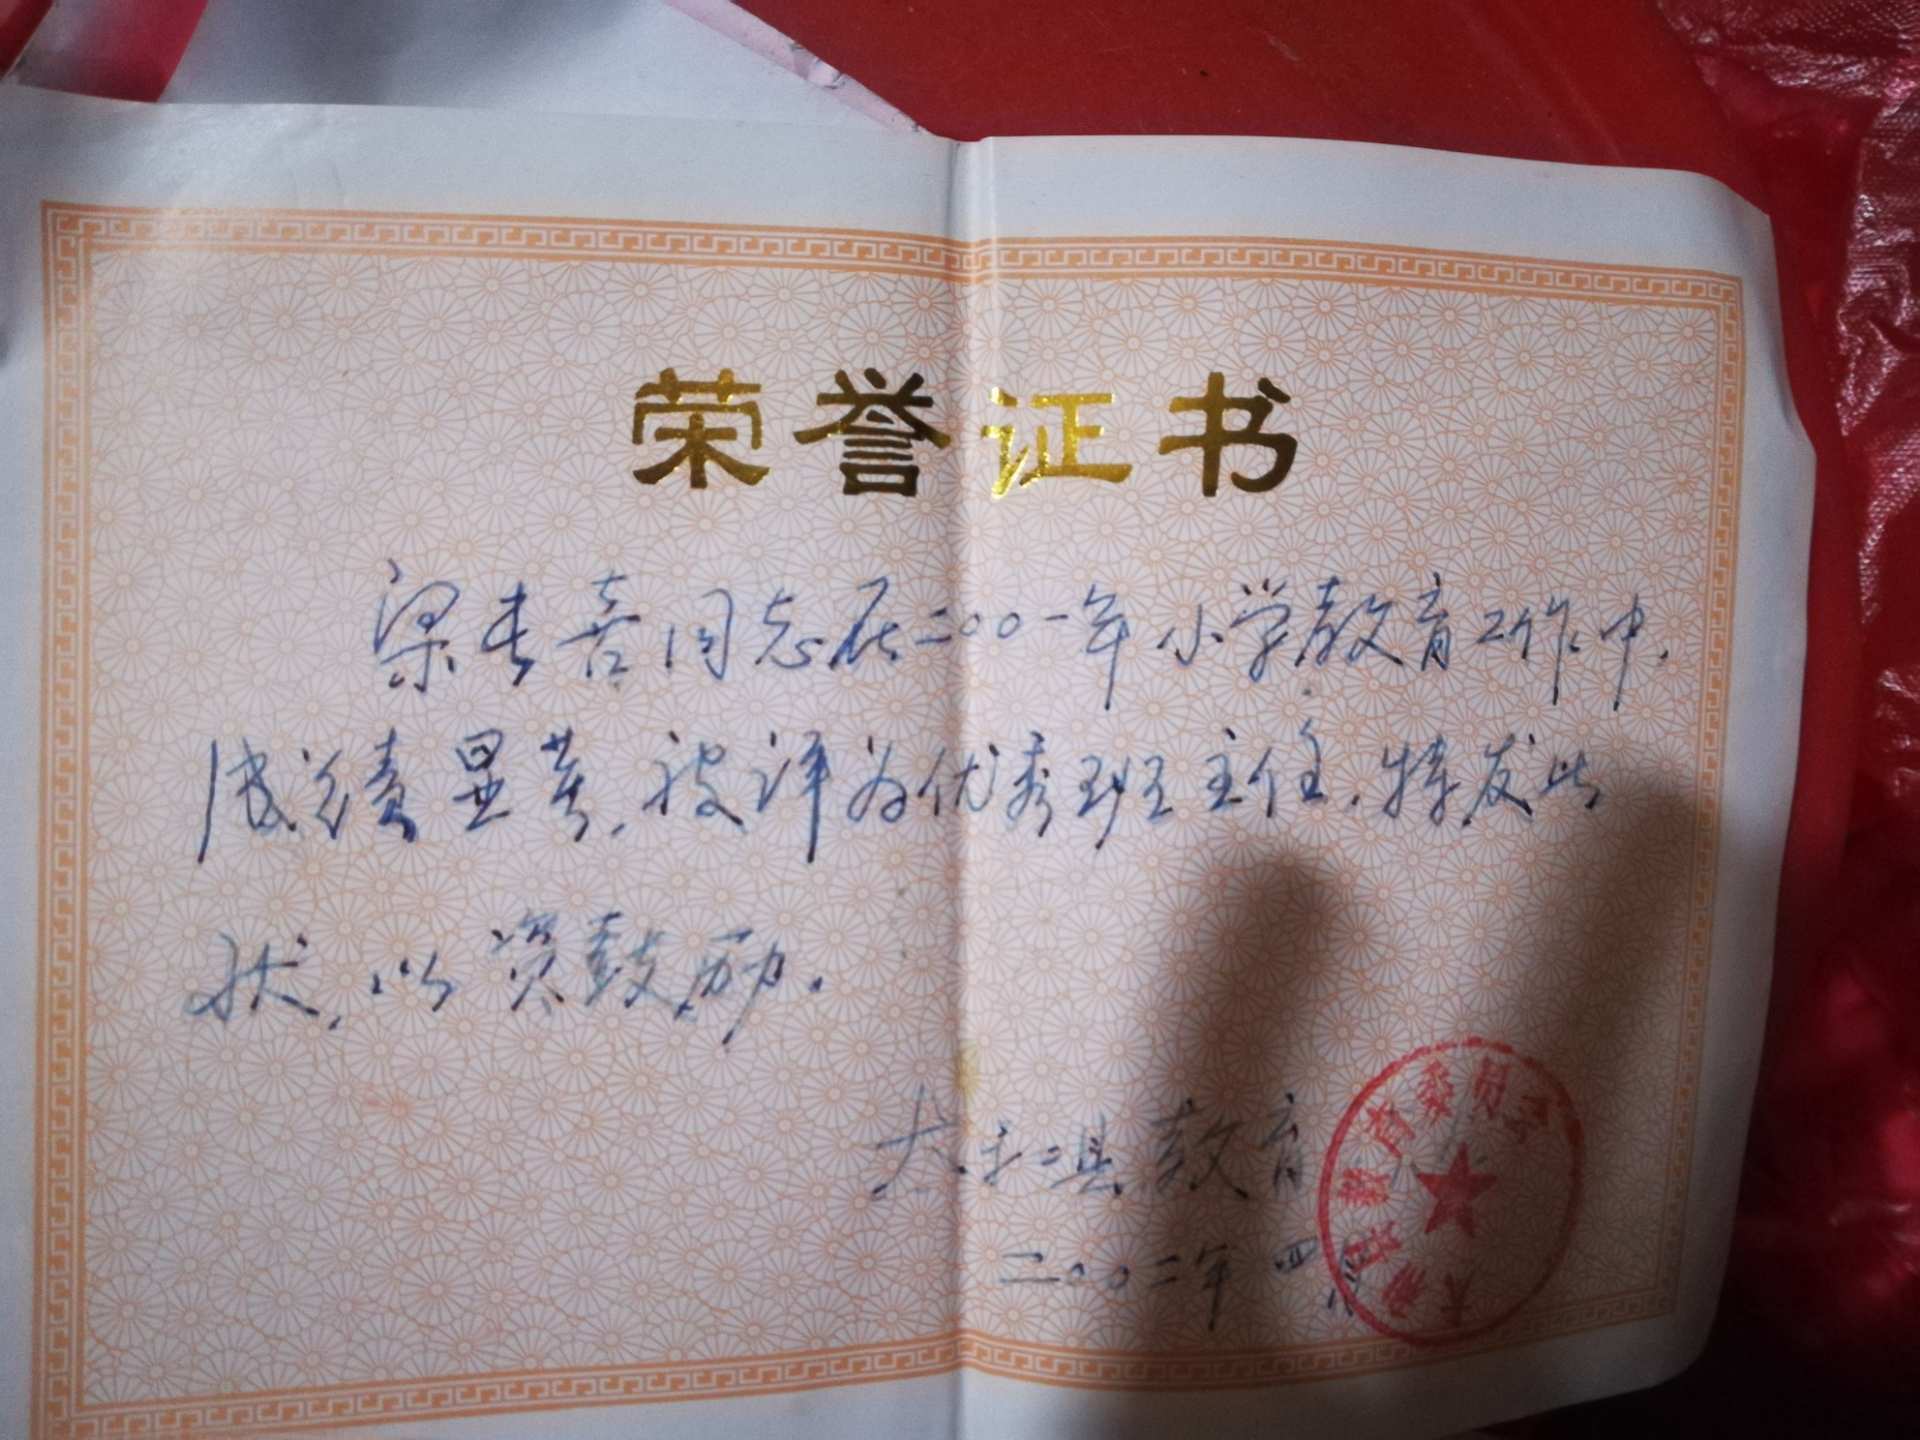 荣誉证书
梁春喜同志在二〇〇一年小学教育工作中,
成绩显著,被评为优秀班主任,特发此
状,以资鼓励.
太和县教育
二〇〇二年四月
太和县教育委员会